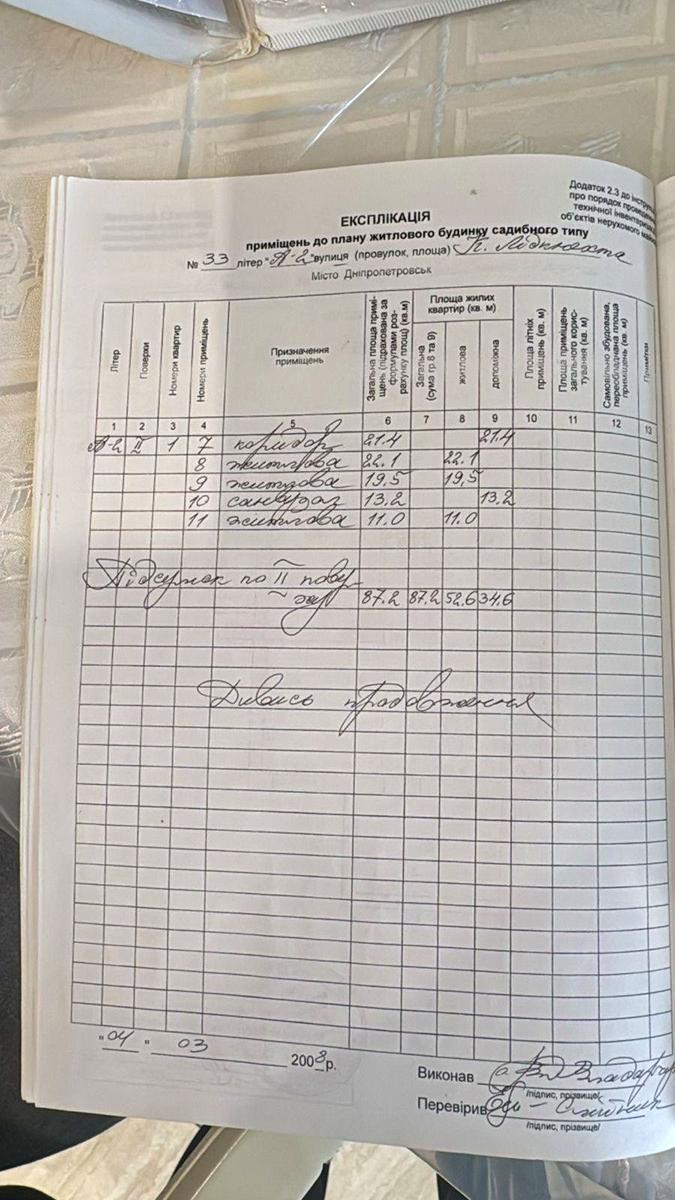 Додаток 2.3 до інструкції
про порядок проведення
технічної інвентаризації
об'єктів нерухомого майна
ЕКСПЛІКАЦІЯ
приміщень до плану житлового будинку садибного типу
№ 33 літер "А-2" вулиця (провулок, площа) К. Лібкнехта
Місто Дніпропетровськ
Літер
Поверхи
Номери квартир
Номери приміщень
Призначення приміщень
Загальна площа приміщень (підрахована за формулами розрахунку площ) (кв.м)
Площа жилих квартир (кв. м)
Загальна (сума гр.8 та 9)
житлова
допоміжна
Площа літніх приміщень (кв. м)
Площа приміщень загального користування (кв. м)
Самовільно збудована, переобладнана площа приміщень (кв. м)
Примітки
1 2 3 4 5 6 7 8 9 10 11 12 13
А-2 II 1 7 коридор 21.4 21.4
8 житлова 22.1 22.1
9 житлова 19.5 19,5
10 санвузол 13.2 13.2
11 житлова 11.0 11.0
Підсумок по II повер-
ху 87.2 87.2 52.6 34.6
Дивись продовження
"04" 03 2008 р.
Виконав
/підпис, прізвище/
Перевірив
/підпис, прізвище/